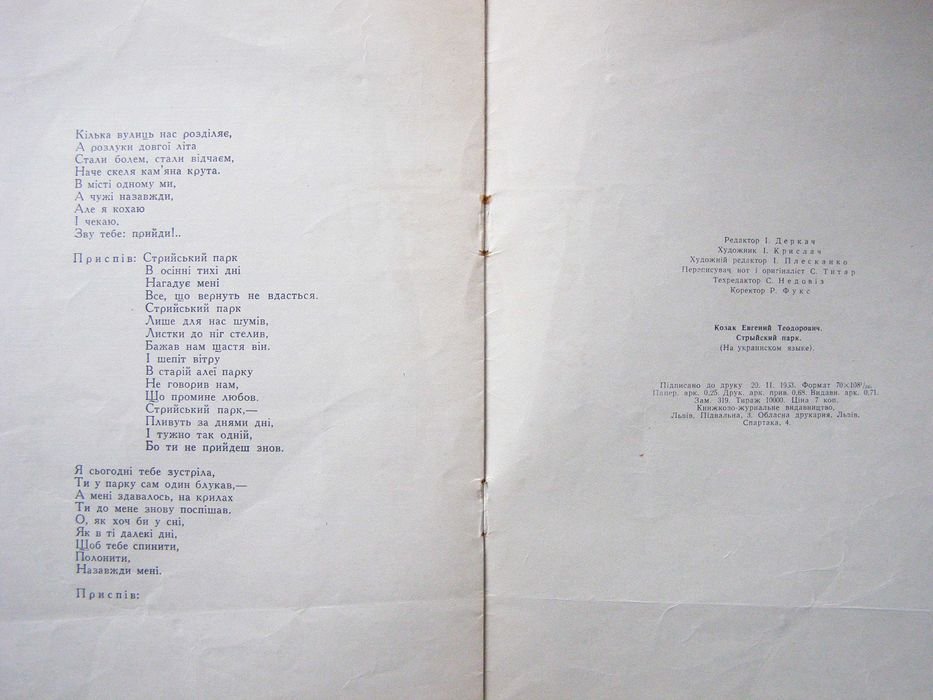 Кілька вулиць нас розділяє,
А розлуки довгої літа
Стали болем, стали відчаєм,
Наче скеля кам'яна крута.
В місті одному ми,
А чужі назавжди,
Але я кохаю
І чекаю,
Зву тебе: прийди!..
Приспів: Стрийський парк
В осінні тихі дні
Нагадує мені
Все, що вернуть не вдасться.
Стрийський парк
Лише для нас шумів,
Листки до ніг стелив,
Бажав нам щастя він.
І шепіт вітру
В старій алеї парку
Не говорив нам,
Що промине любов.
Стрийський парк,—
Пливуть за днями дні,
І тужно так одній,
Бо ти не прийдеш знов.
Я сьогодні тебе зустріла,
Ти у парку сам один блукав,—
А мені здавалось, на крилах
Ти до мене знову поспішав.
О, як хоч би у сні,
Як в ті далекі дні,
Щоб тебе спинити,
Полонити,
Назавжди мені.
Приспів:
Редактор І. Деркач
Художник І. Крислач
Художній редактор І. Плесканко
Переписувач нот і оригіналіст С. Титар
Техредактор С. Недовіз
Коректор Р. Фукс
Козак Евгений Теодорович.
Стрыйский парк.
(На украинском языке).
Підписано до друку 20. II. 1953. Формат 70×108¹/₁₆.
Папер. арк. 0,25. Друк. арк. прив. 0,68. Видавн. арк. 0,71.
Зам. 319. Тираж 10000. Ціна 7 коп.
Книжково-журнальне видавництво,
Львів, Підвальна, 3. Обласна друкарня, Львів,
Спартака, 4.